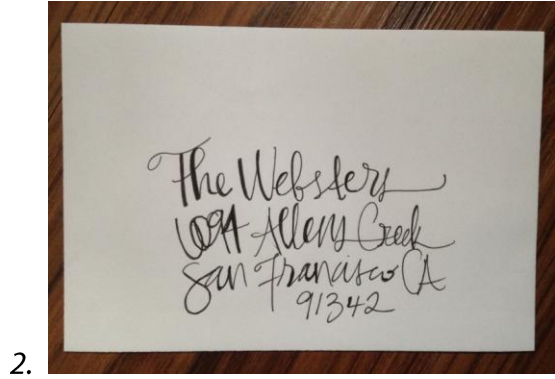 The Websters
6094 Allens Creek
San Francisco CA
91342
2.